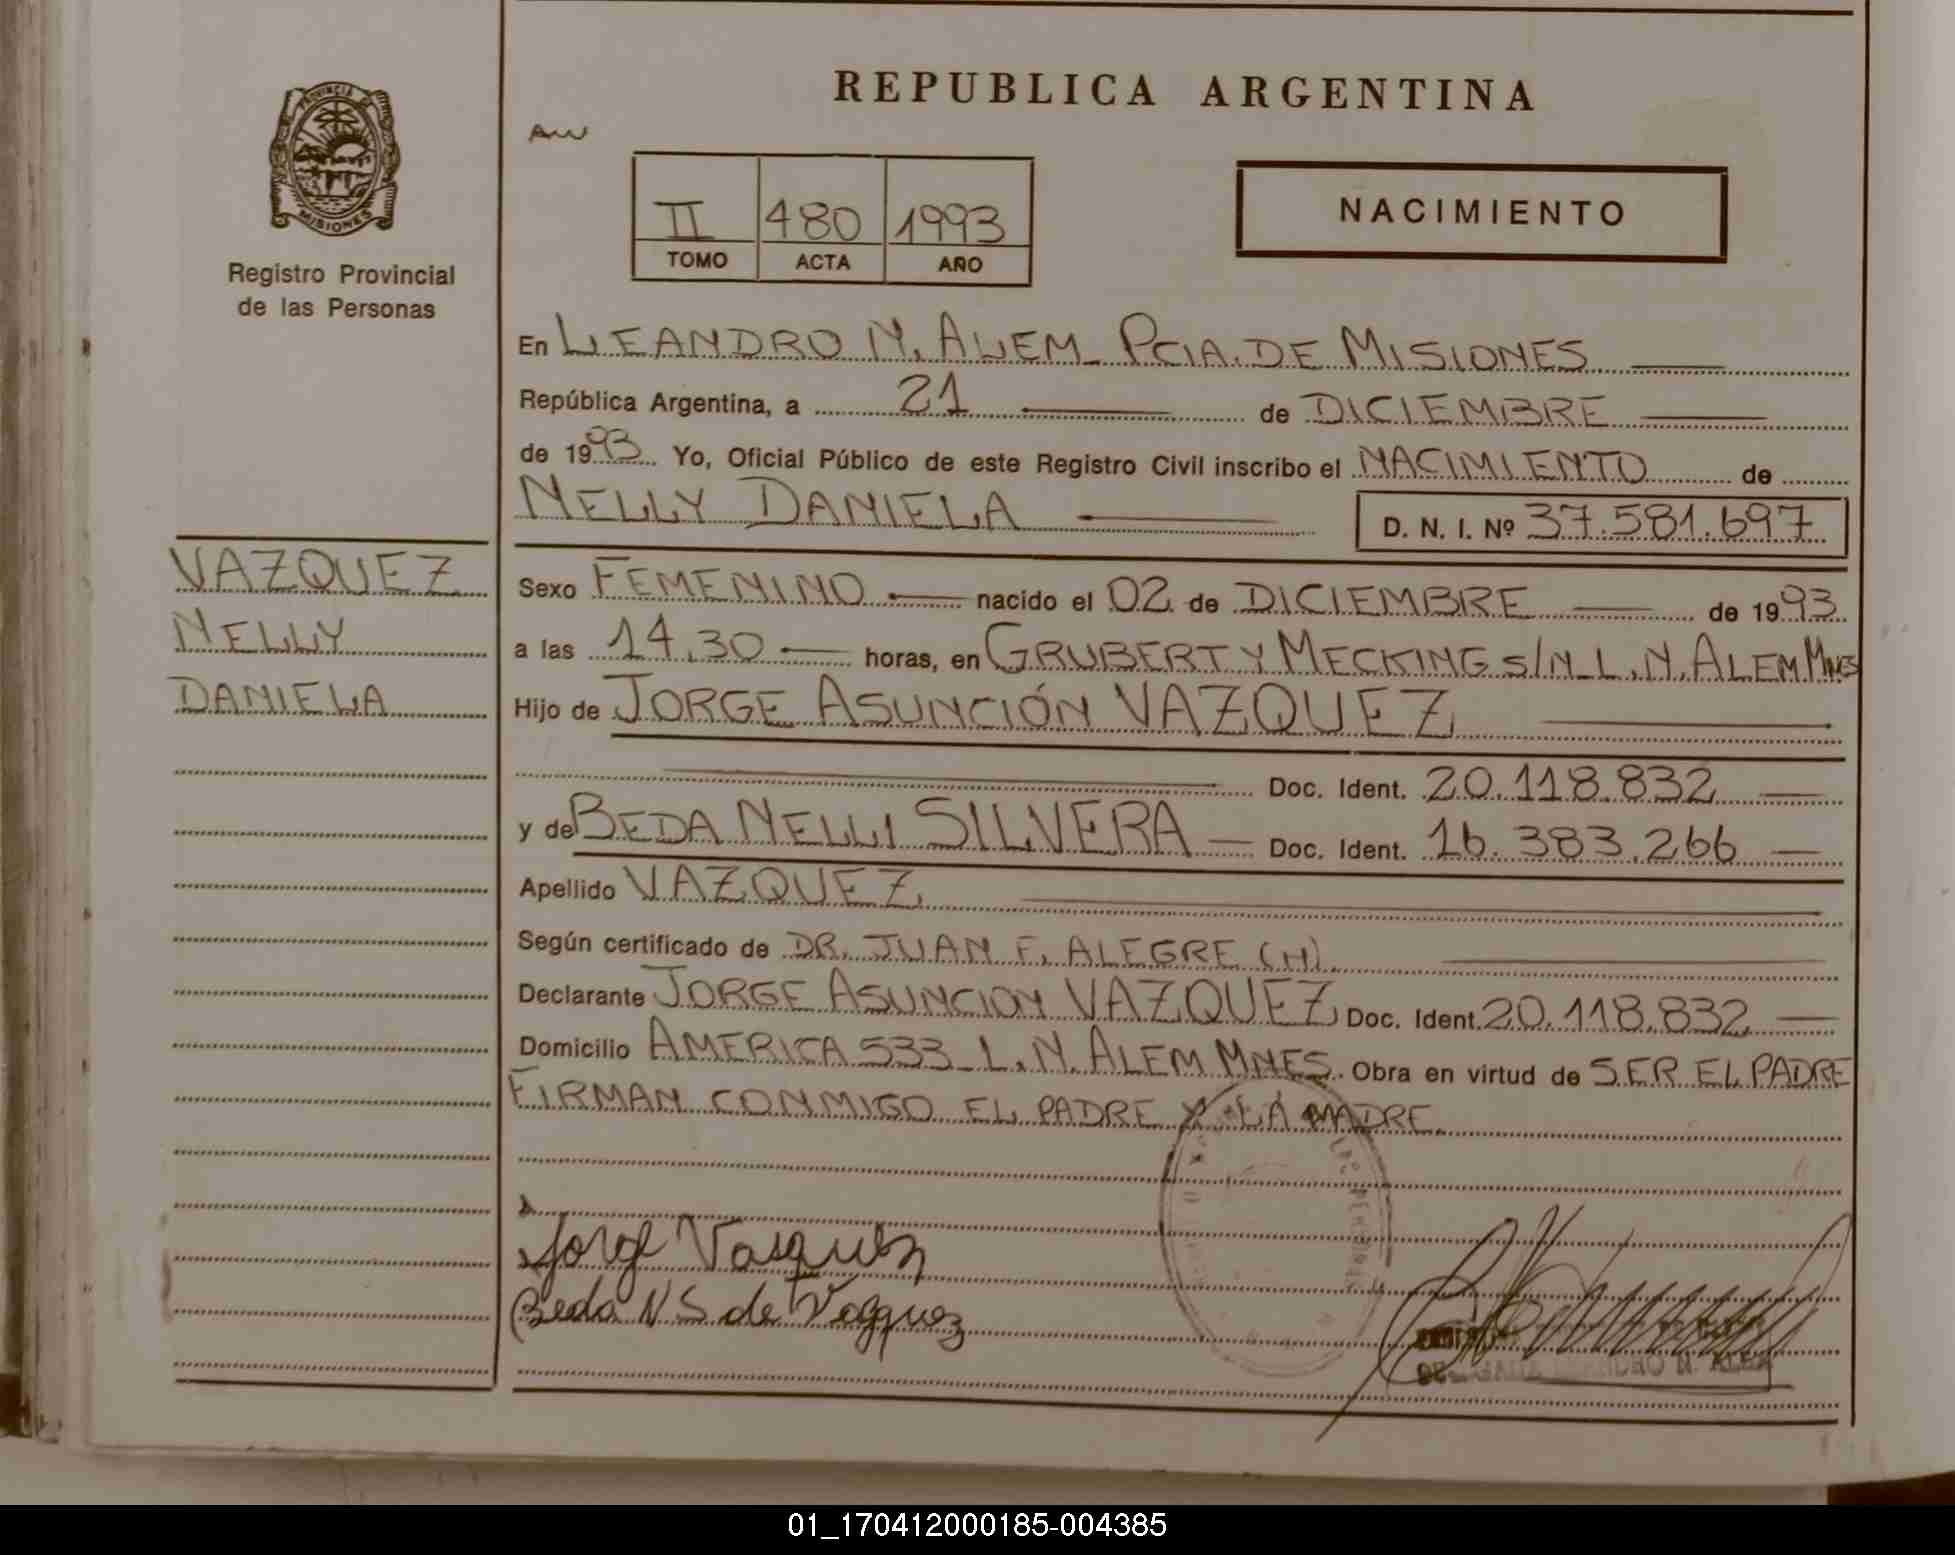 PROVINCIA DE
MISIONES
Registro Provincial
de las Personas
VAZQUEZ
NELLY
DANIELA
REPUBLICA ARGENTINA
AW
II 480 1993
TOMO ACTA AÑO
NACIMIENTO
En LEANDRO N. ALEM PCIA. DE MISIONES
República Argentina, a 21 de DICIEMBRE
de 1993 Yo, Oficial Público de este Registro Civil inscribo el NACIMIENTO de
NELLY DANIELA D. N. I. Nº 37.581.697
Sexo FEMENINO nacido el 02 de DICIEMBRE de 1993
a las 14.30 horas, en GRUBERT Y MECKING S/N L.N. ALEM MNES
Hijo de JORGE ASUNCIÓN VAZQUEZ
Doc. Ident. 20.118.832
y de BEDA NELLI SILVERA Doc. Ident. 16.383.266
Apellido VAZQUEZ
Según certificado de DR. JUAN F. ALEGRE (H).
Declarante JORGE ASUNCION VAZQUEZ Doc. Ident. 20.118.832
Domicilio AMERICA 533 L.N. ALEM MNES. Obra en virtud de SER EL PADRE
FIRMAN CONMIGO EL PADRE Y LA MADRE.
Jorge Vasquez
Beda N S de Vazquez
01_170412000185-004385